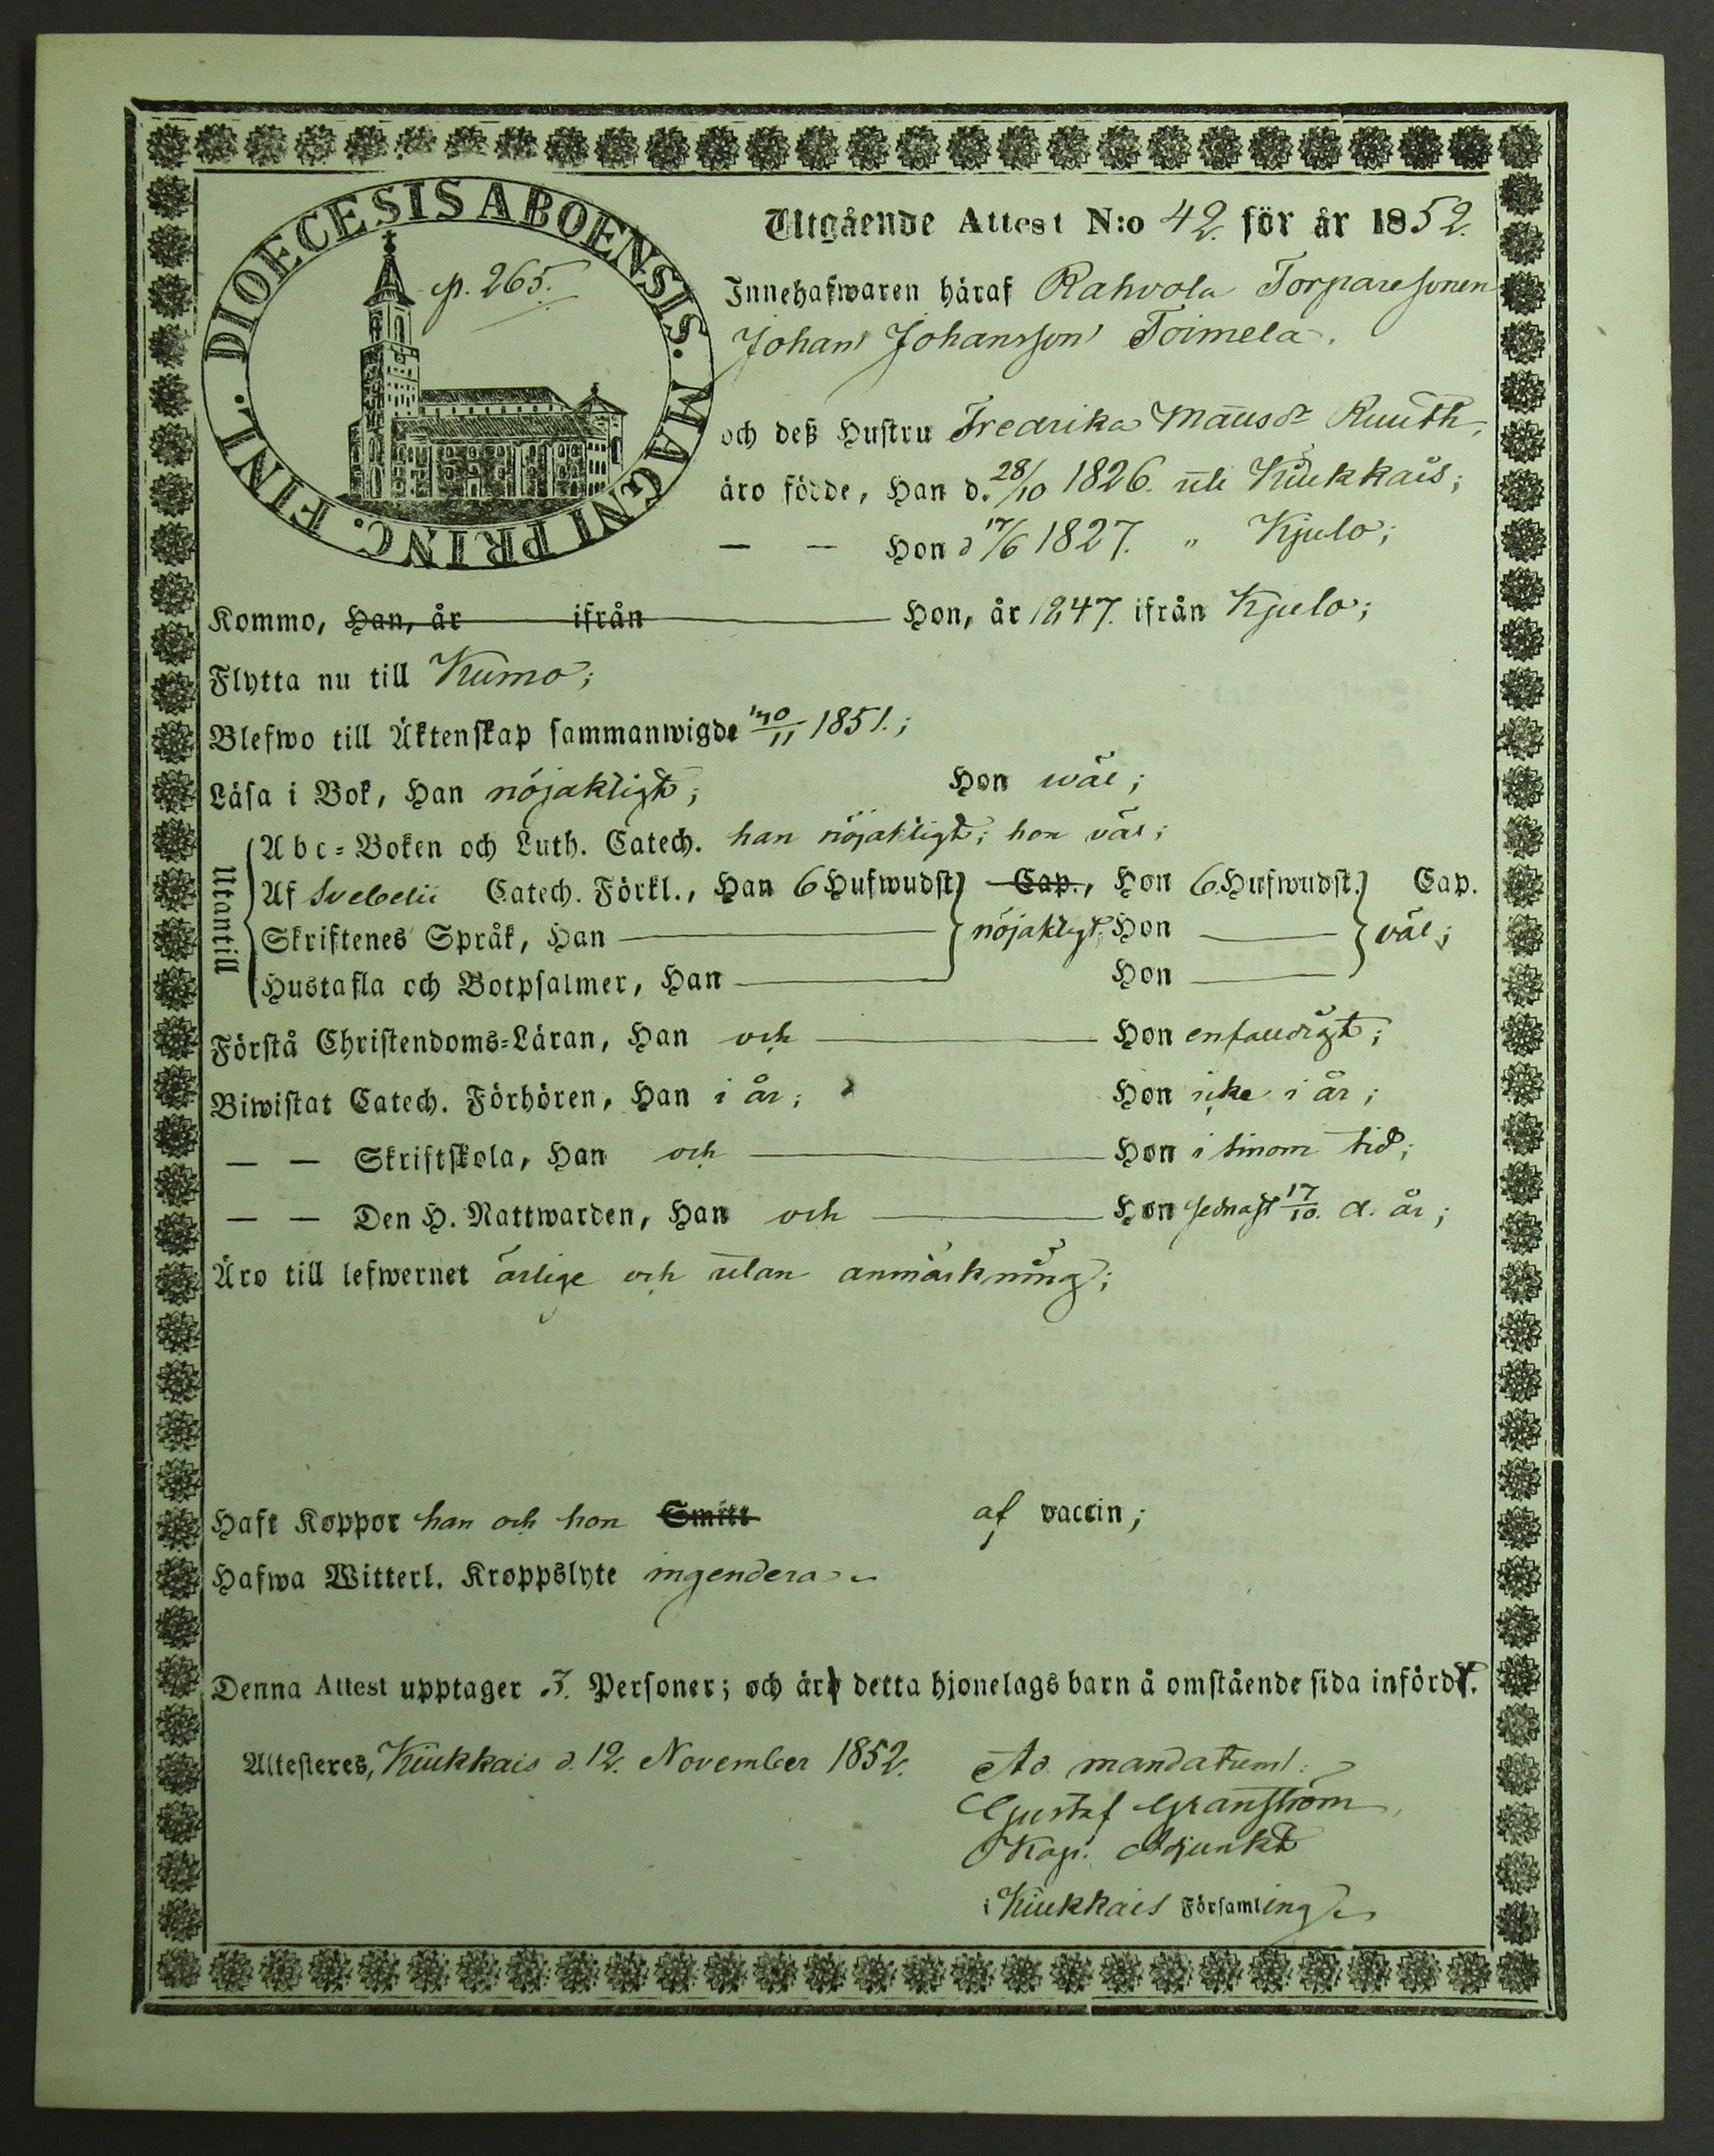 DIOECESIS ABOENSIS. MAGNI PRINC. FINL.
p. 265.
Utgående Attest N:o 42. för år 1852.
Innehafwaren häraf Rahvola Torparesonen
Johan Johansson Toimela.
och deß Hustru Fredrika Mausdr Ruuth,
äro födde, Han d. 28/10 1826. uti Kiukkais;
— — Hon d 17/6 1827. " Kjulo;
Kommo, Han, år ifrån Hon, år 1847. ifrån Kjulo;
Flytta nu till Kumo;
Blefwo till Äktenskap sammanwigde 1851.;
Läsa i Bok, Han nöjaktigt; Hon wäl;
Utantill
Abc-Boken och Luth. Catech. han nöjaktigt; hon väl;
Af Svebelii Catech. Förkl., Han 6 Hufwudst. Cap., Hon 6. Hufwudst. Cap.
Skriftenes Språk, Han nöjaktigt; Hon väl;
Hustafla och Botpsalmer, Han Hon
Förstå Christendoms-Läran, Han och Hon enfaldigt;
Biwistat Catech. Förhören, Han i år; Hon icke i år;
— — Skriftskola, Han och Hon i sinom tid;
— — Den H. Nattwarden, Han och Hon sednast 17/10. d. år;
Äro till lefwernet ärlige och utan anmärkning;
Haft Koppor han och hon Smitt af vaccin;
Hafwa Witterl. Kroppslyte ingendera
Denna Attest upptager 3. Personer; och är detta hjonelags barn å omstående sida infördt.
Attesteres, Kiukkais d. 12. November 1852.
Ad mandatum:
Gustaf Granström
Kap. Adjunkt
i Kiukkais Församling